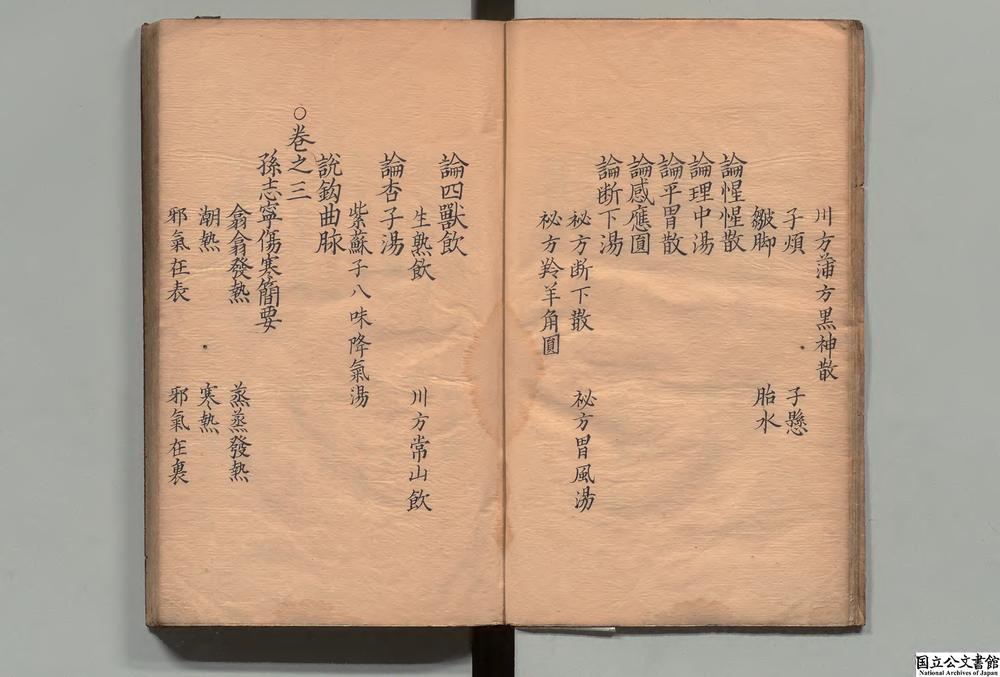 川方蒲方黒神散
子煩　子懸
皺脚　胎水
論惺惺散
論理中湯
論平胃散
論感應圓
論断下湯
秘方断下散　秘方胃風湯
秘方羚羊角圓
論四獸飲
生熟飲　川方常山飲
論杏子湯
紫蘇子八味降氣湯
說鈎曲脉
○卷之三
孫志寧傷寒簡要
翕翕發熱　蒸蒸發熱
潮熱　寒熱
邪氣在表　邪氣在裏
国立公文書館
National Archives of Japan